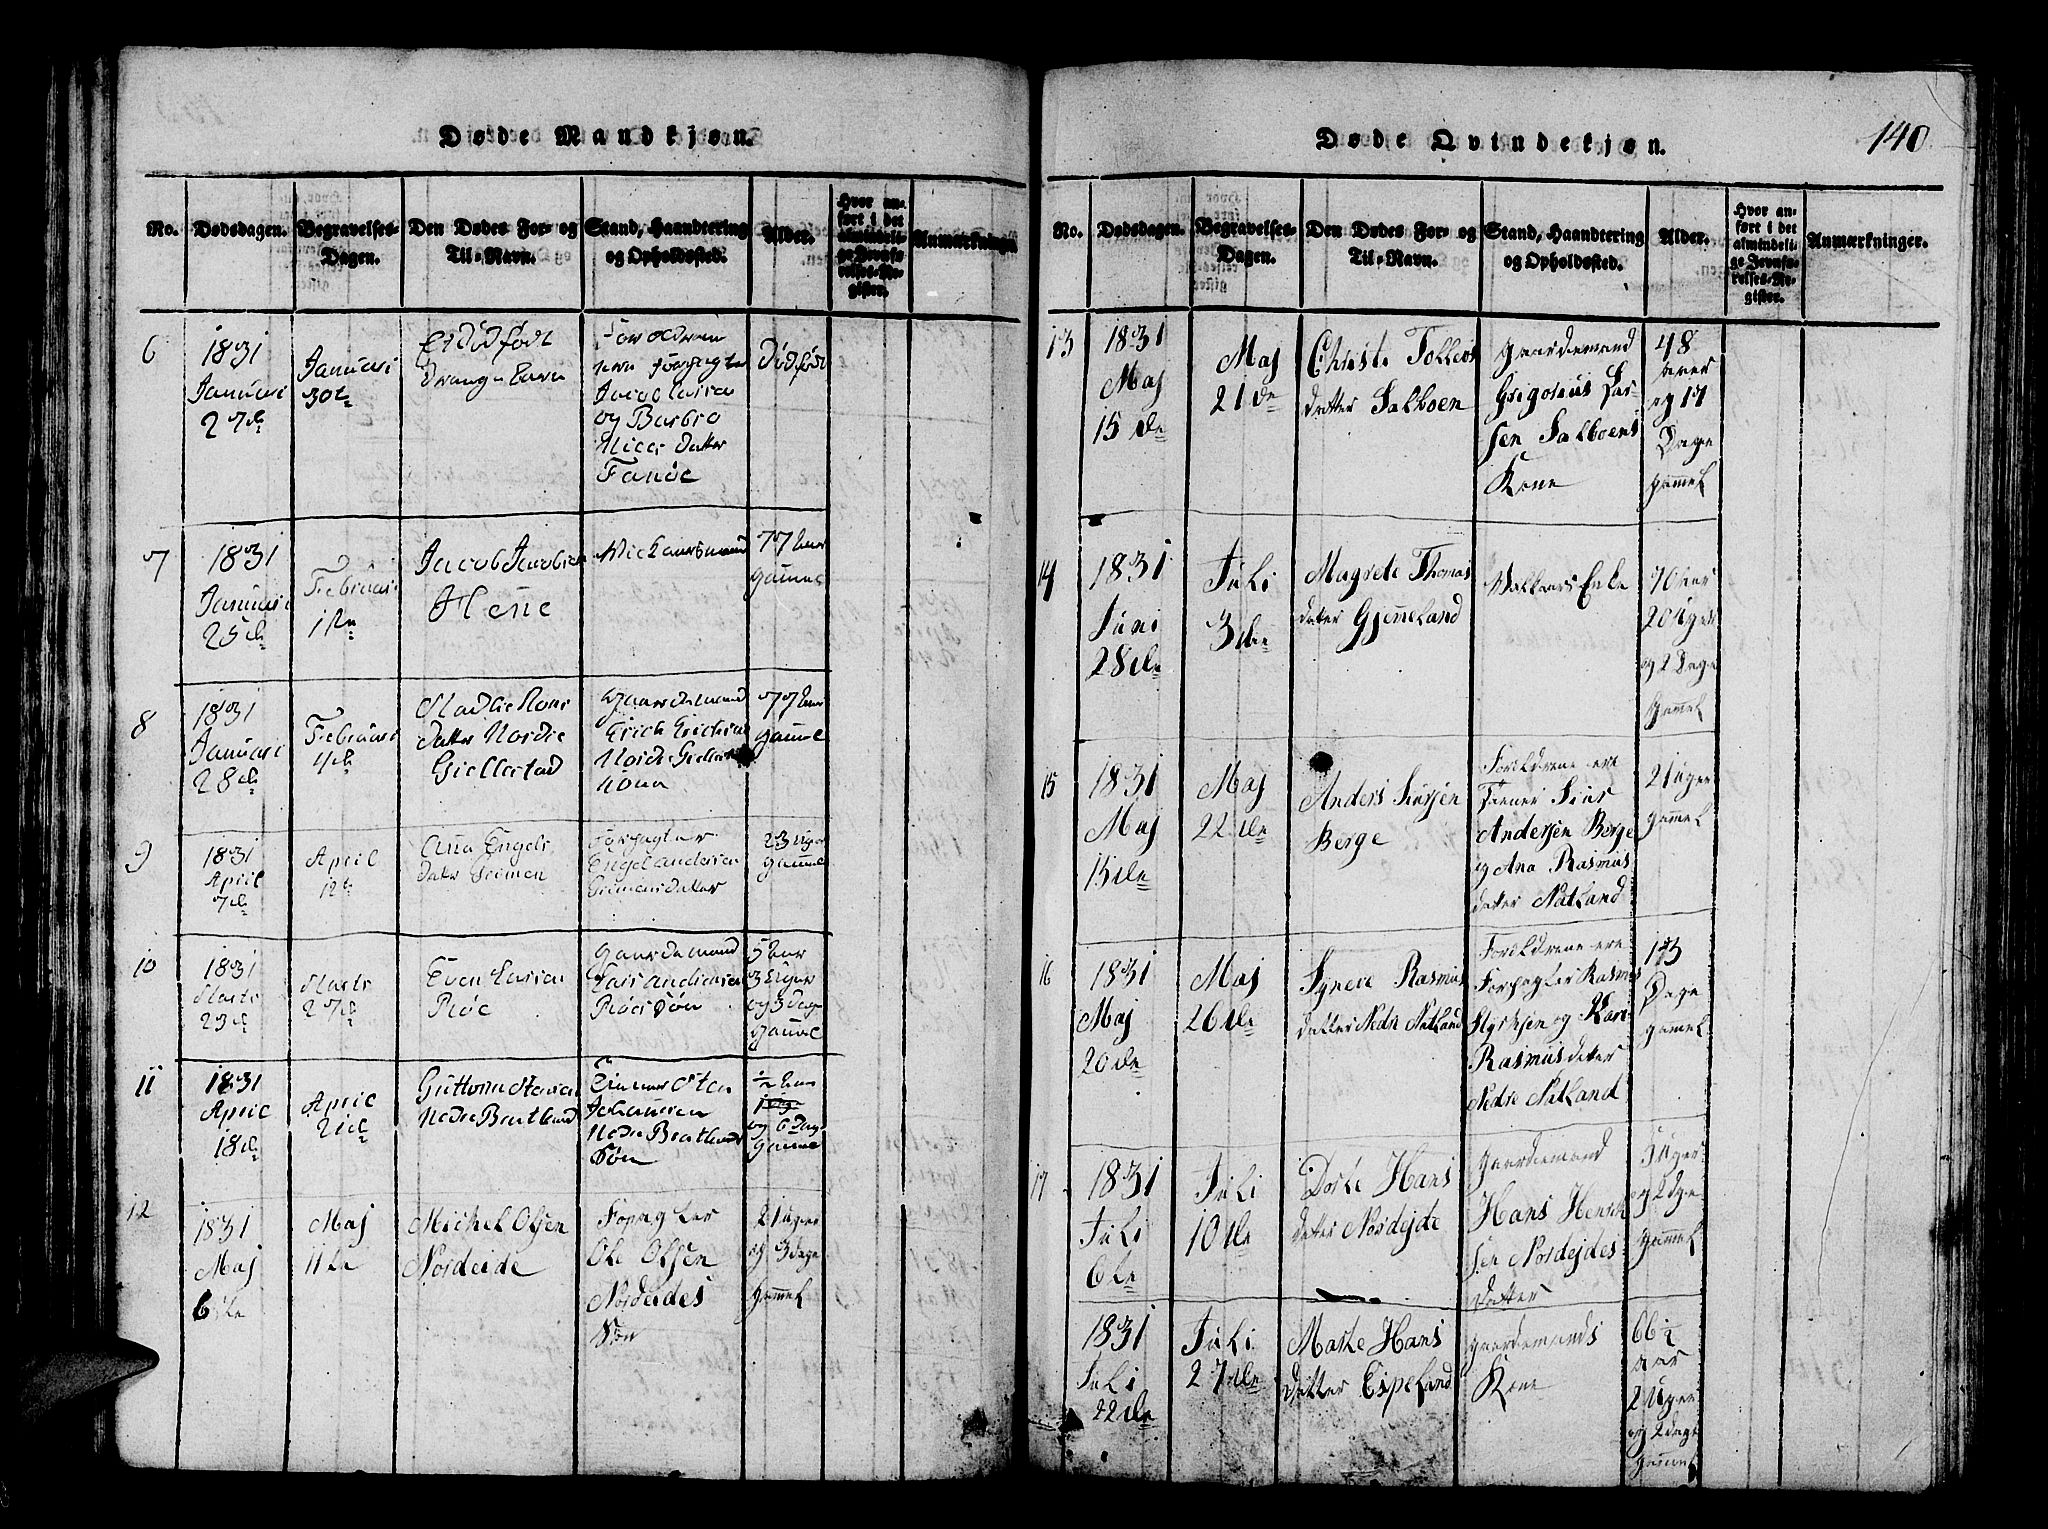 Døde Mandkjøn.
No.
Dødsdagen.
Begravelses-
Dagen.
Den Dødes For- og
Til-Navn.
Stand, Haandtering
og Opholdssted.
Alder.
Hvor an-
ført i det
almindeli-
ge Jevnfø-
relses-Re-
gister.
Anmærkninger.
6
1831
Januari
27de
Januari
30te
Et dødfødt
Drænge Barn
Jacob Larsen
og Barbro
Datter
Fanøe
Dødfødt
7
1831
Januari
25de
Februari
1ste
Jacob Jacobsen
77 Aar
gammel
8
1831
Januari
28de
Februari
4de
Datter Nordre
Giellestad
Gaardemand
Erich Erichsen
Nordre
Kone
77 Aar
gammel
9
1831
April
7de
April
12te
Anna Engels
Datter Grimen
Forpagter
Engel Andersen
Grimens Datter
23 Uger
gammel
10
1831
Marts
23de
Marts
27de
Even Larsen
Røe
Gaardemand
Lars Andersen
Røes Søn
5 Aar
3 Uger
og 3 Dage
gammel
11
1831
April
18de
April
21de
Guttorm Steensen
Nedre Bratland
Sten
Johannesen
Nedre Bratlands
Søn
½ Aar
og 6 Dage
gammel
12
1831
Maj
6te
Maj
11te
Michel Olsen
Nordeide
Forpagter
Ole Olsen
Nordeides
Søn
21 Uger
og 3 Dage
Gammel
Døde Qvindekjøn.
140
No.
Dødsdagen.
Begravelses-
Dagen.
Den Dødes For- og
Til-Navn.
Stand, Haandtering
og Opholdssted.
Alder.
Hvor an-
ført i det
almindeli-
ge Jevnfø-
relses-Re-
gister.
Anmærkninger.
13
1831
Maj
15de
Maj
21de
Christi Tollevs
datter Salboen
Gaardemand
Grigorius Lar-
sen Salboens
Kone
48
Aar
og 17
Dage
gammel
14
1831
Juni
28de
Juli
3de
Magrete Thomas
datter Gjemeland
Enke
70 Aar
20 Uger
og 2 Dage
Gammel
15
1831
Maj
15de
Maj
22de
Anders Siursen
Berge
Forældrene ere
Siur
Andersen Berge
og Ana Rasmus
datter Natland
21 Uger
gamel
16
1831
Maj
20de
Maj
26de
Syneve Rasmus
datter Nedre Natland
Forældrene ere
Forpagter Rasmus
Styrksen og Kari
Rasmusdatter
Nedre Natland
Dage
gamel
17
1831
Juli
6te
Juli
10de
Dorte Hans
datter Nordejde
Gaardemand
Hans Henrik-
sen Nordejdes
Datter
5 Uger
og 2 Dge
gammel
1831
Juli
22de
Juli
27de
Marte Hans
Datter Espeland
Gaardemands
Kone
66½
Aar
2 Uger
og 2 Dage
gammel